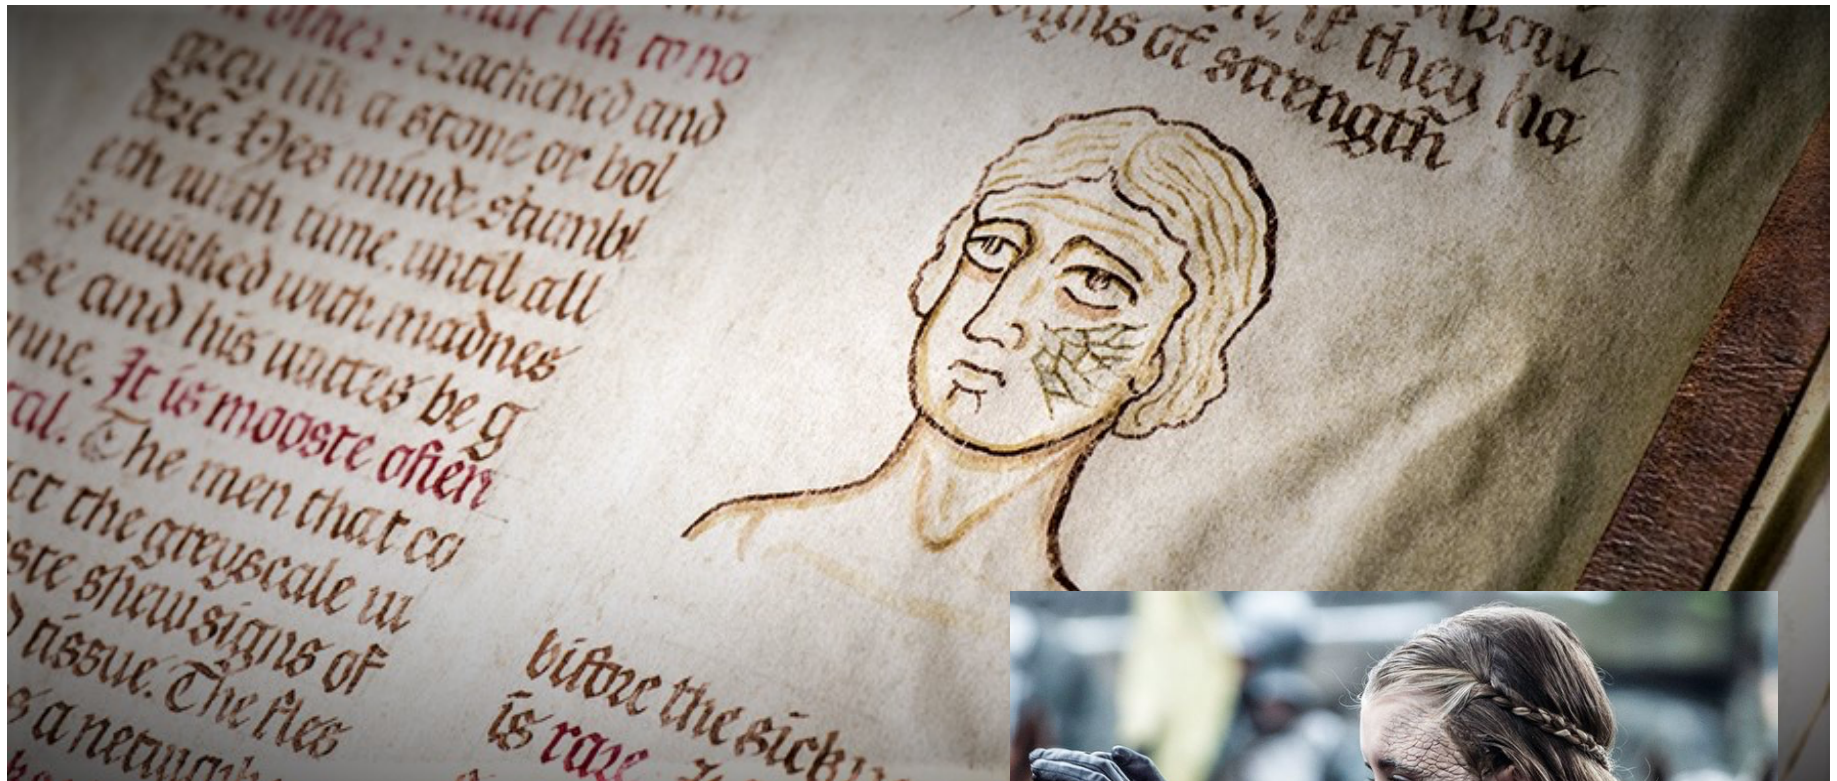 that lik to no
other: crackched and
grey lik a stone or bol
dre. Hes minde stumbl
eth with time, until all
is wicked with madnes
se and his wittes be g
nne. It is mooste ofien
tal. The men that co
ct the greyscale in
ste shew signs of
tissue. The fles
s a network
if they ha
signs of strength
bifore the sickn
is rare